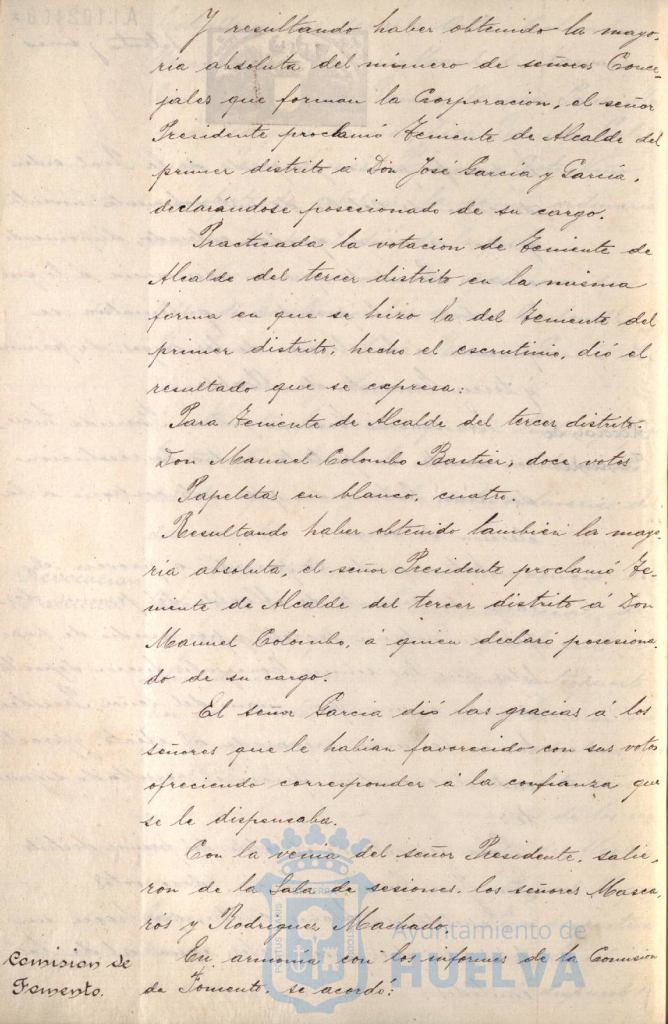 Y resultando haber obtenido la mayo-
ria absoluta del número de señores Conce-
jales que forman la Corporacion, el señor
Presidente proclamó Teniente de Alcalde del
primer distrito á Don José Garcia y Garcia,
declarándose posesionado de su cargo.
Practicada la votacion de Teniente de
Alcalde del tercer distrito en la misma
forma en que se hizo la del Teniente del
primer distrito, hecho el escrutinio, dió el
resultado que se expresa:
Para Teniente de Alcalde del tercer distrito.
Don Manuel Colombo Bastier, doce votos
Papeletas en blanco, cuatro.
Resultando haber obtenido tambien la mayo-
ria absoluta, el señor Presidente proclamó Te-
niente de Alcalde del tercer distrito á Don
Manuel Colombo, á quien declaró posesiona-
do de su cargo.
El señor Garcia dió las gracias á los
señores que le habian favorecido con sus votos
ofreciendo corresponder á la confianza que
se le dispensaba.
Con la venia del señor Presidente, salie-
ron de la Sala de sesiones, los señores Masca-
rós y Rodriguez Machado.
Comision de
Fomento.
En armonia con los informes de la Comision
de Fomento, se acordó:
Ayuntamiento de
HUELVA